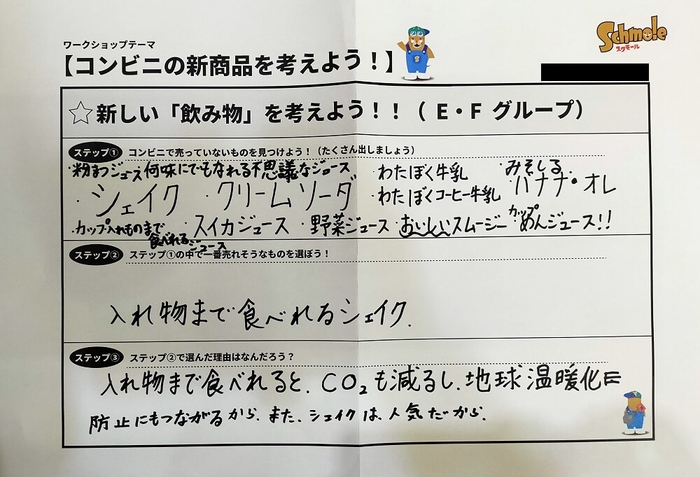 Schmole
スクモール
ワークショップテーマ
【コンビニの新商品を考えよう!】
☆新しい「飲み物」を考えよう!!( E・F グループ)
ステップ① コンビニで売っていないものを見つけよう!(たくさん出しましょう)
・粉まつジュース 何味にでもなれる不思議なジュース ・わたぼく牛乳 ・みそしる
・シェイク ・クリームソーダ ・わたぼくコーヒー牛乳 ・バナナ・オレ
・カップ入れものまで食べれるジュース ・スイカジュース ・野菜ジュース ・おいしいスムージー ・カップめんジュース!!
ステップ② ステップ①の中で一番売れそうなものを選ぼう!
入れ物まで食べれるシェイク.
ステップ③ ステップ②で選んだ理由はなんだろう?
入れ物まで食べれると、CO₂も減るし、地球温暖化
防止にもつながるから、また、シェイクは、人気だから.